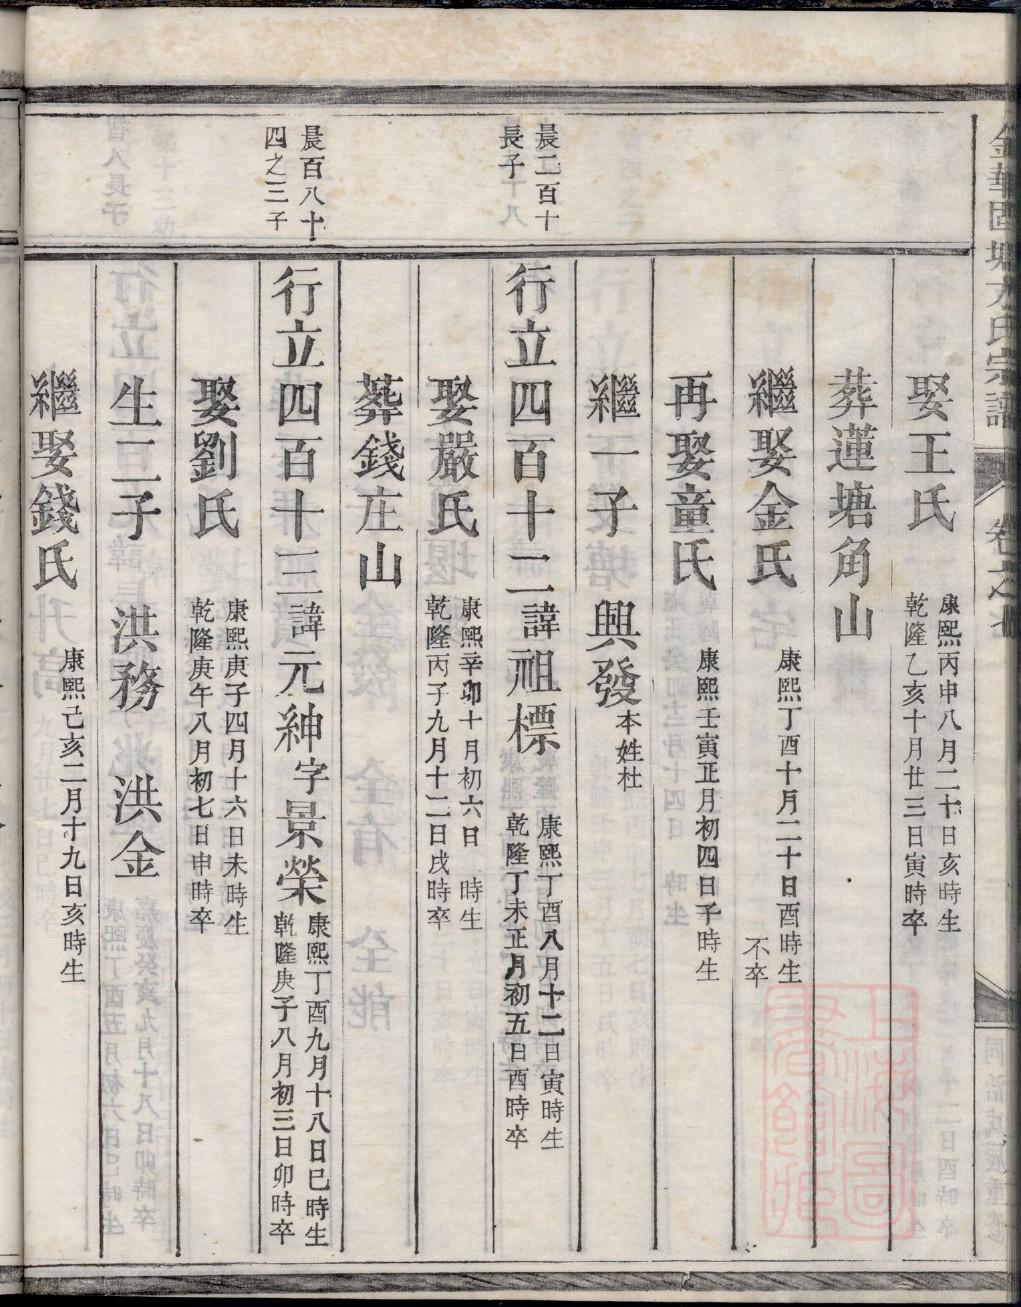 金華固塘方氏宗譜
卷之
娶王氏
康熙丙申八月二十日亥時生
乾隆乙亥十月廿三日寅時卒
葬蓮塘角山
繼娶金氏
康熙丁酉十月二十日酉時生
不卒
再娶童氏
康熙壬寅正月初四日子時生
繼一子 興發 本姓杜
晨二百十
長子
行立四百十二諱祖標
康熙丁酉八月十二日寅時生
乾隆丁未正月初五日酉時卒
娶嚴氏
康熙辛卯十月初六日 時生
乾隆丙子九月十二日戌時卒
葬錢庄山
晨百八十
四之三子
行立四百十三諱元紳字景榮
康熙丁酉九月十八日巳時生
乾隆庚子八月初三日卯時卒
娶劉氏
康熙庚子四月十六日未時生
乾隆庚午八月初七日申時卒
生二子 洪務 洪金
繼娶錢氏
康熙己亥二月十九日亥時生